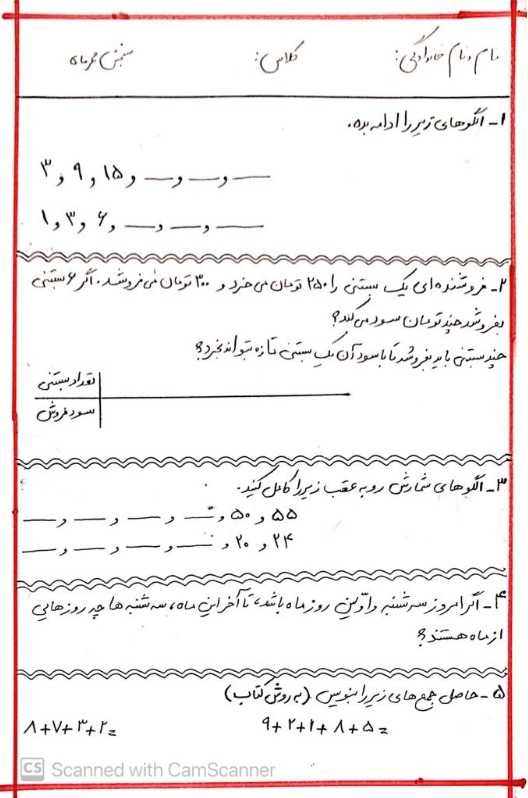 نام و نام خانوادگی: کلاس: سنجش مهرماه
۱- الگوهای زیر را ادامه بده.
۳ و ۹ و ۱۵ و __ و __ و __
۱ و ۳ و ۶ و __ و __ و __
۲- فروشنده‌ای یک بستنی را ۲۵۰ تومان می خرد و ۳۰۰ تومان می فروشد. اگر ۶ بستنی
بفروشد چند تومان سود می کند؟
چند بستنی باید بفروشد تا با سود آن یک بستنی تازه بتواند بخرد؟
تعداد بستنی
سود فروش
۳- الگوهای شمارش رو به عقب زیر را کامل کنید.
۵۵ و ۵۰ و __ و __ و __ و __
۲۴ و ۲۰ و __ و __ و __ و __
۴- اگر امروز سه شنبه و اوّلین روز ماه باشد، تا آخر این ماه، سه شنبه ها چه روزهایی
از ماه هستند؟
۵- حاصل جمع های زیر را بنویس (به روش کتاب)
۹+۲+۱+۸+۵= ۸+۷+۳+۲=
CS Scanned with CamScanner